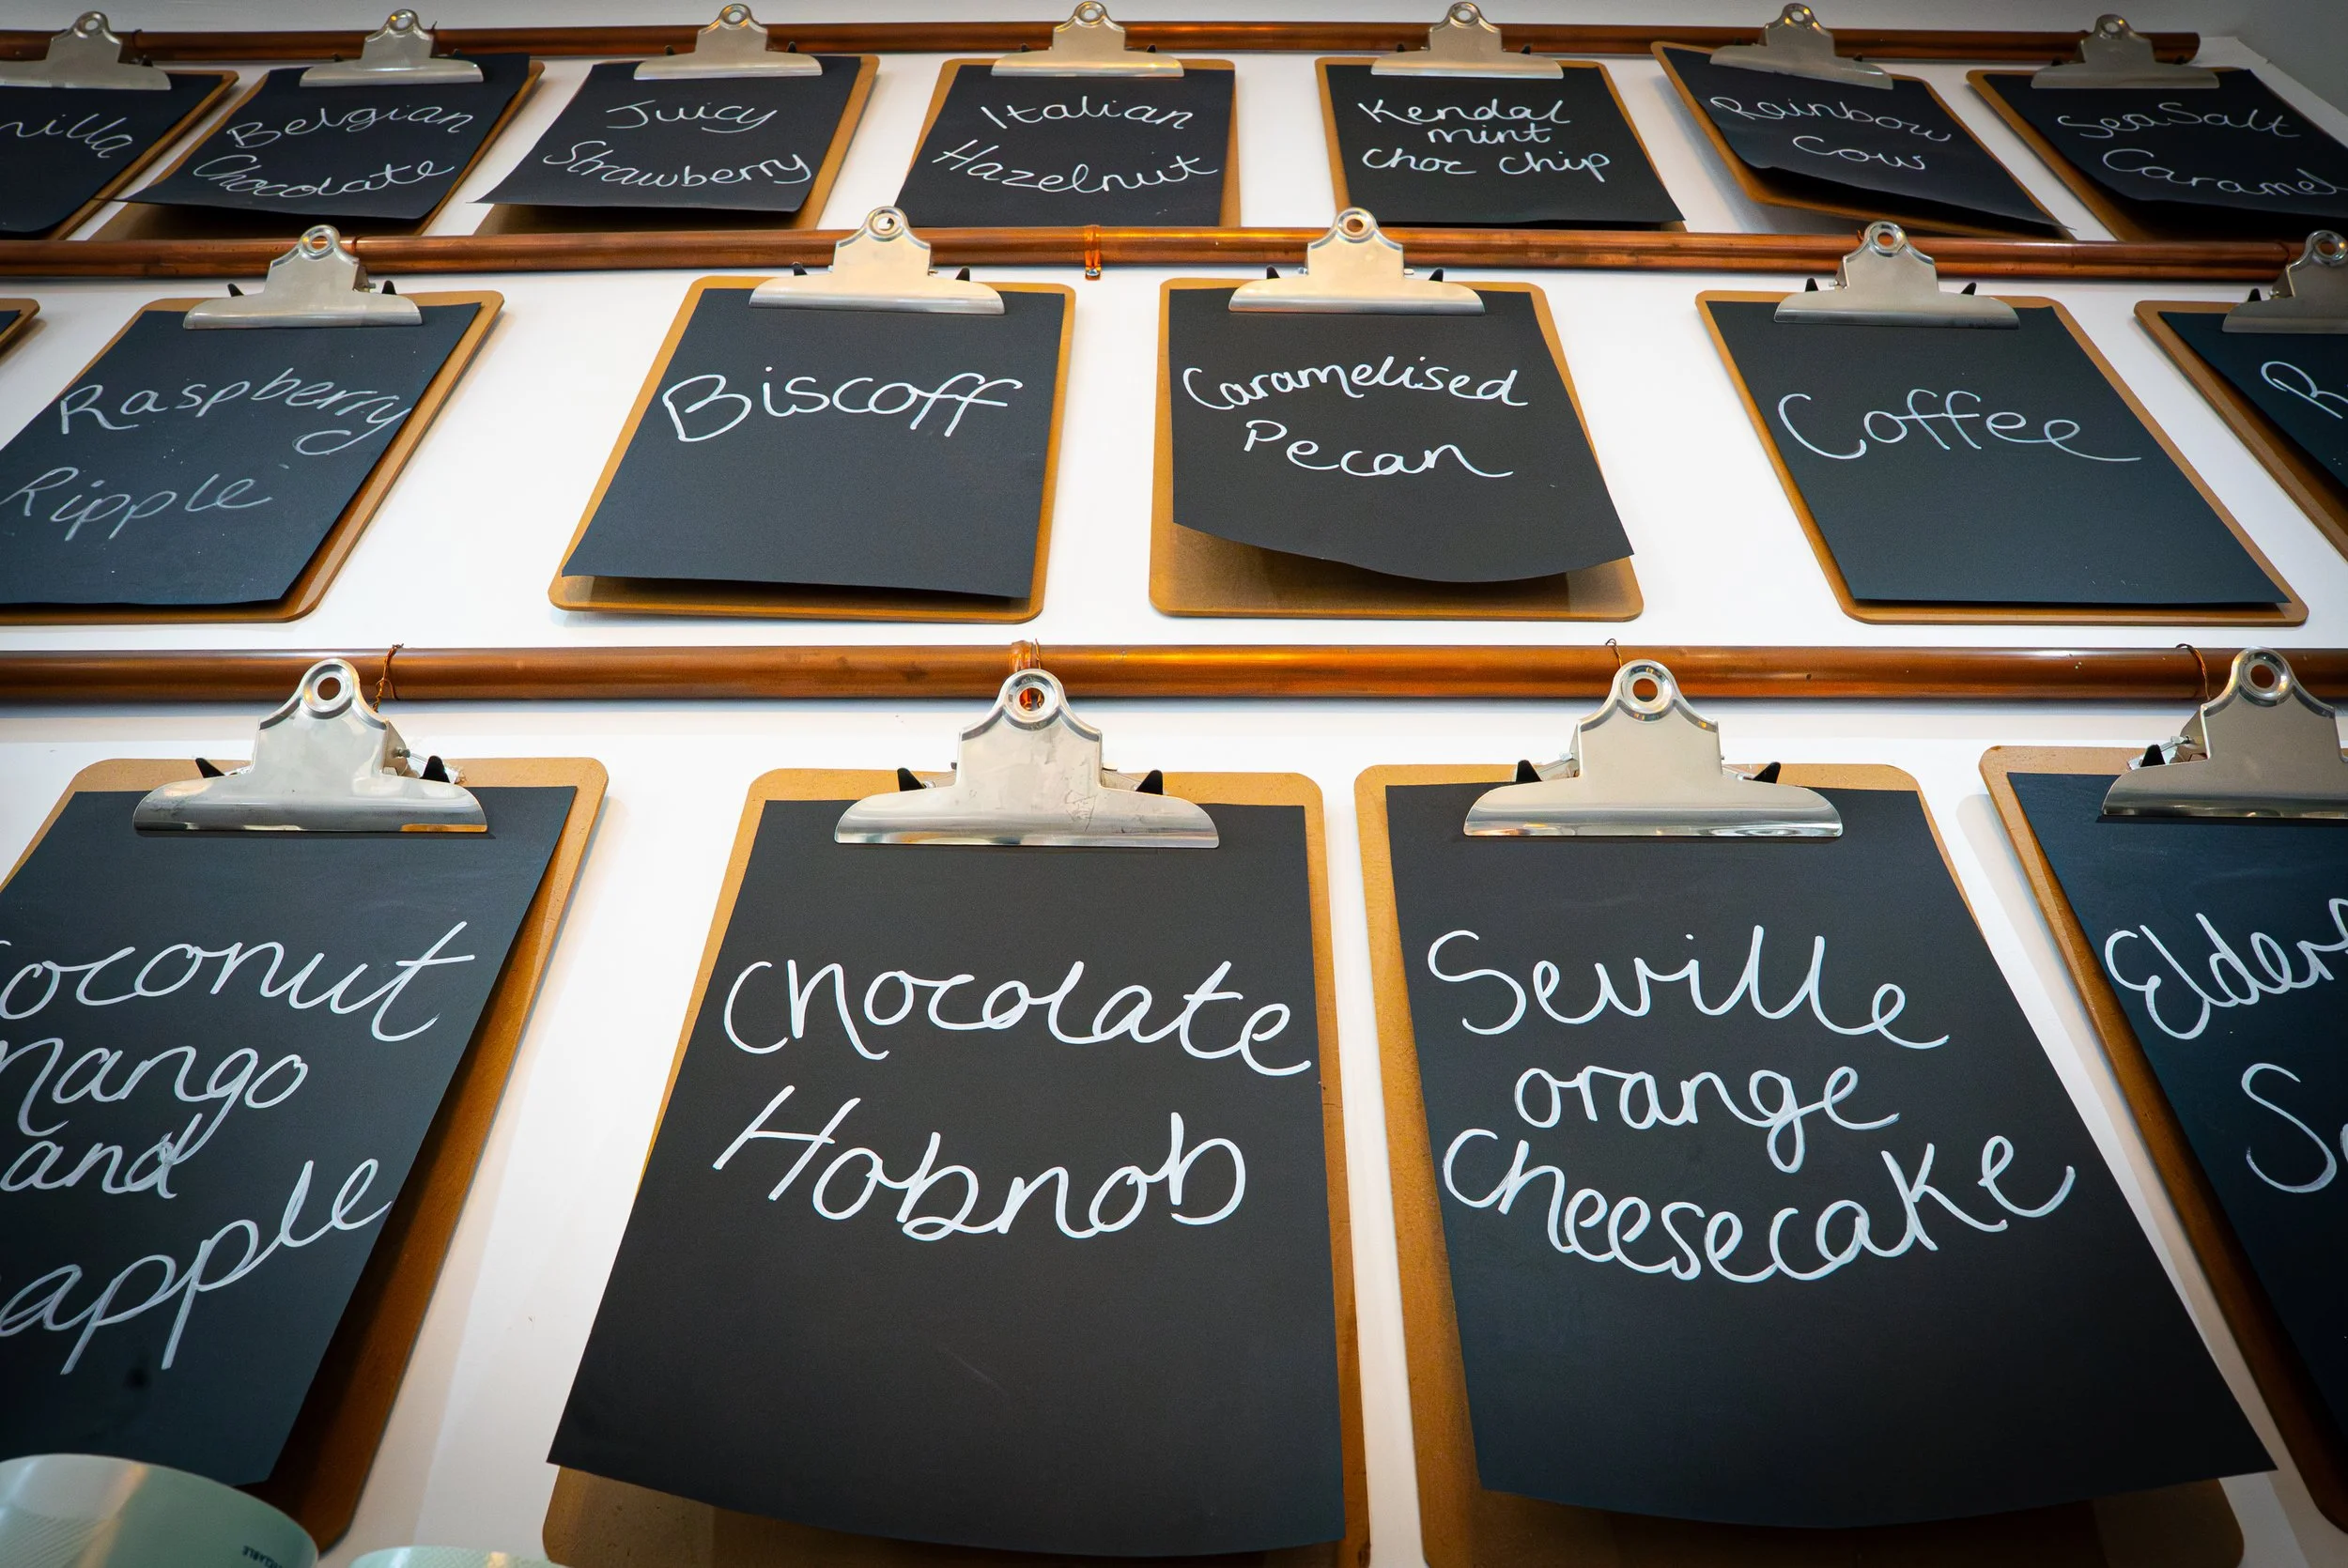 Belgian
Chocolate
Juicy
Strawberry
Italian
Hazelnut
Kendal
mint
choc chip
Rainbow
Cow
SeaSalt
Caramel
Raspberry
Ripple
Biscoff
Caramelised
Pecan
Coffee
and
Chocolate
Hobnob
Seville
orange
Cheesecake